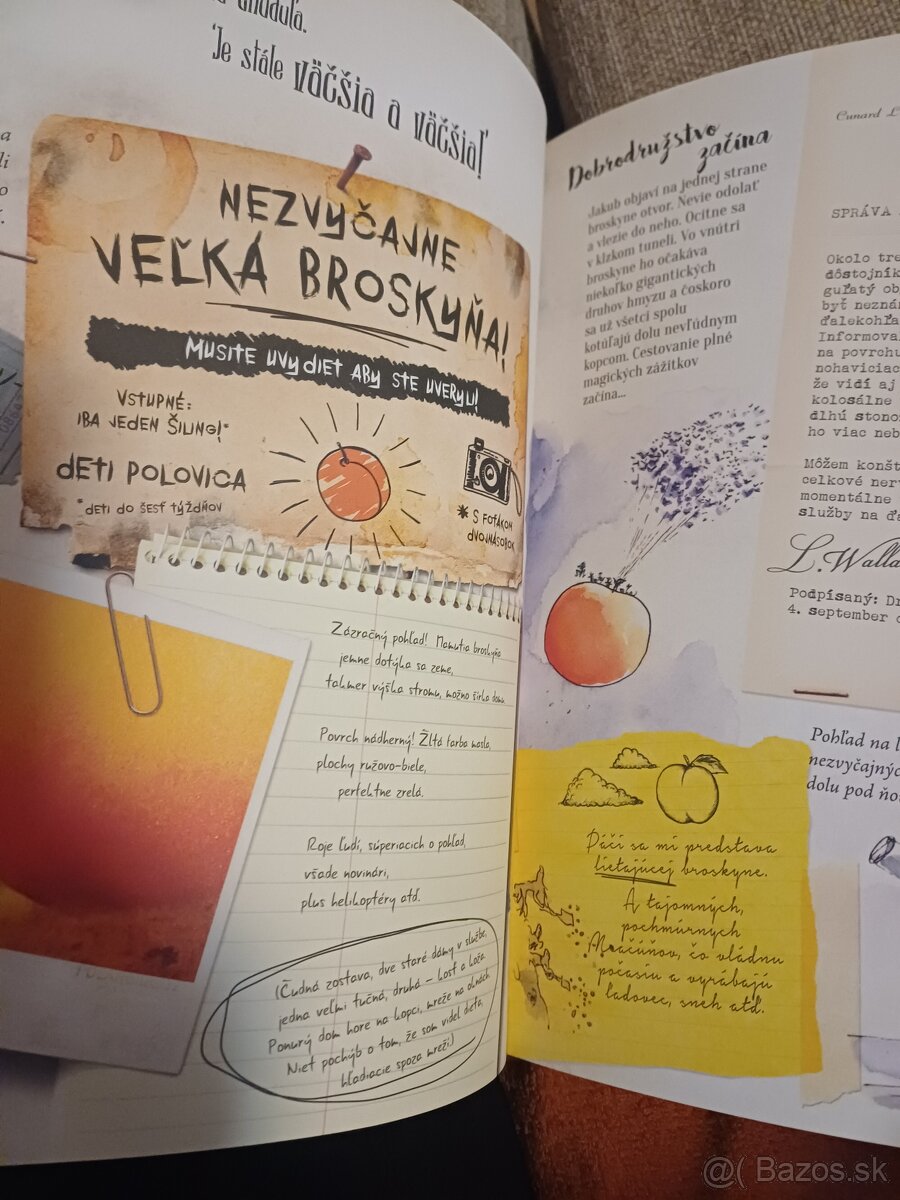 'Je stále väčšia a väčšia!'
NEZVYČAJNE
VEĽKÁ BROSKYŇA!
MUSITE UVYDIET ABY STE UVERYLI!
VSTUPNÉ:
IBA JEDEN ŠILING!*
DETI POLOVICA
*DETI DO ŠESŤ TÝŽDŇOV
* S FOŤÁKOM
DVOJNÁSOBOK
Zázračný pohľad! Mamutia broskyňa
jemne dotýka sa zeme,
takmer výška stromu, možno šírka domu.
Povrch nádherný! Žltá farba masla,
plochy ružovo-biele,
perfektne zrelá.
Roje ľudí, súperiacich o pohľad,
všade novinári,
plus helikoptéry atď.
(Čudná zostava, dve staré dámy v službe,
jedna veľmi tučná, druhá – kosť a koža.
Ponurý dom hore na kopci, mreže na oknách.
Niet pochýb o tom, že som videl dieťa,
hľadiacie spoza mreží.)
Dobrodružstvo
začína
Jakub objaví na jednej strane
broskyne otvor. Nevie odolať
a vlezie do neho. Ocitne sa
v klzkom tuneli. Vo vnútri
broskyne ho očakáva
niekoľko gigantických
druhov hmyzu a čoskoro
sa už všetci spolu
kotúľajú dolu nevľúdnym
kopcom. Cestovanie plné
magických zážitkov
začína...
Páči sa mi predstava
lietajúcej broskyne.
A tajomných,
pochmúrnych
Mračúňov, čo vládnu
počasiu a vyrábajú
ľadovec, sneh atď.
Cunard
SPRÁVA
Okolo
dôstojník
guľatý
byť
Informova
na povrchu
že vidí aj
kolosálne
dlhú
ho viac
Môžem
celkové
momentálne
služby na
L. Walla
Podpísaný:
4. september
Pohľad na
nezvyčajných
dolu pod
@( Bazos.sk